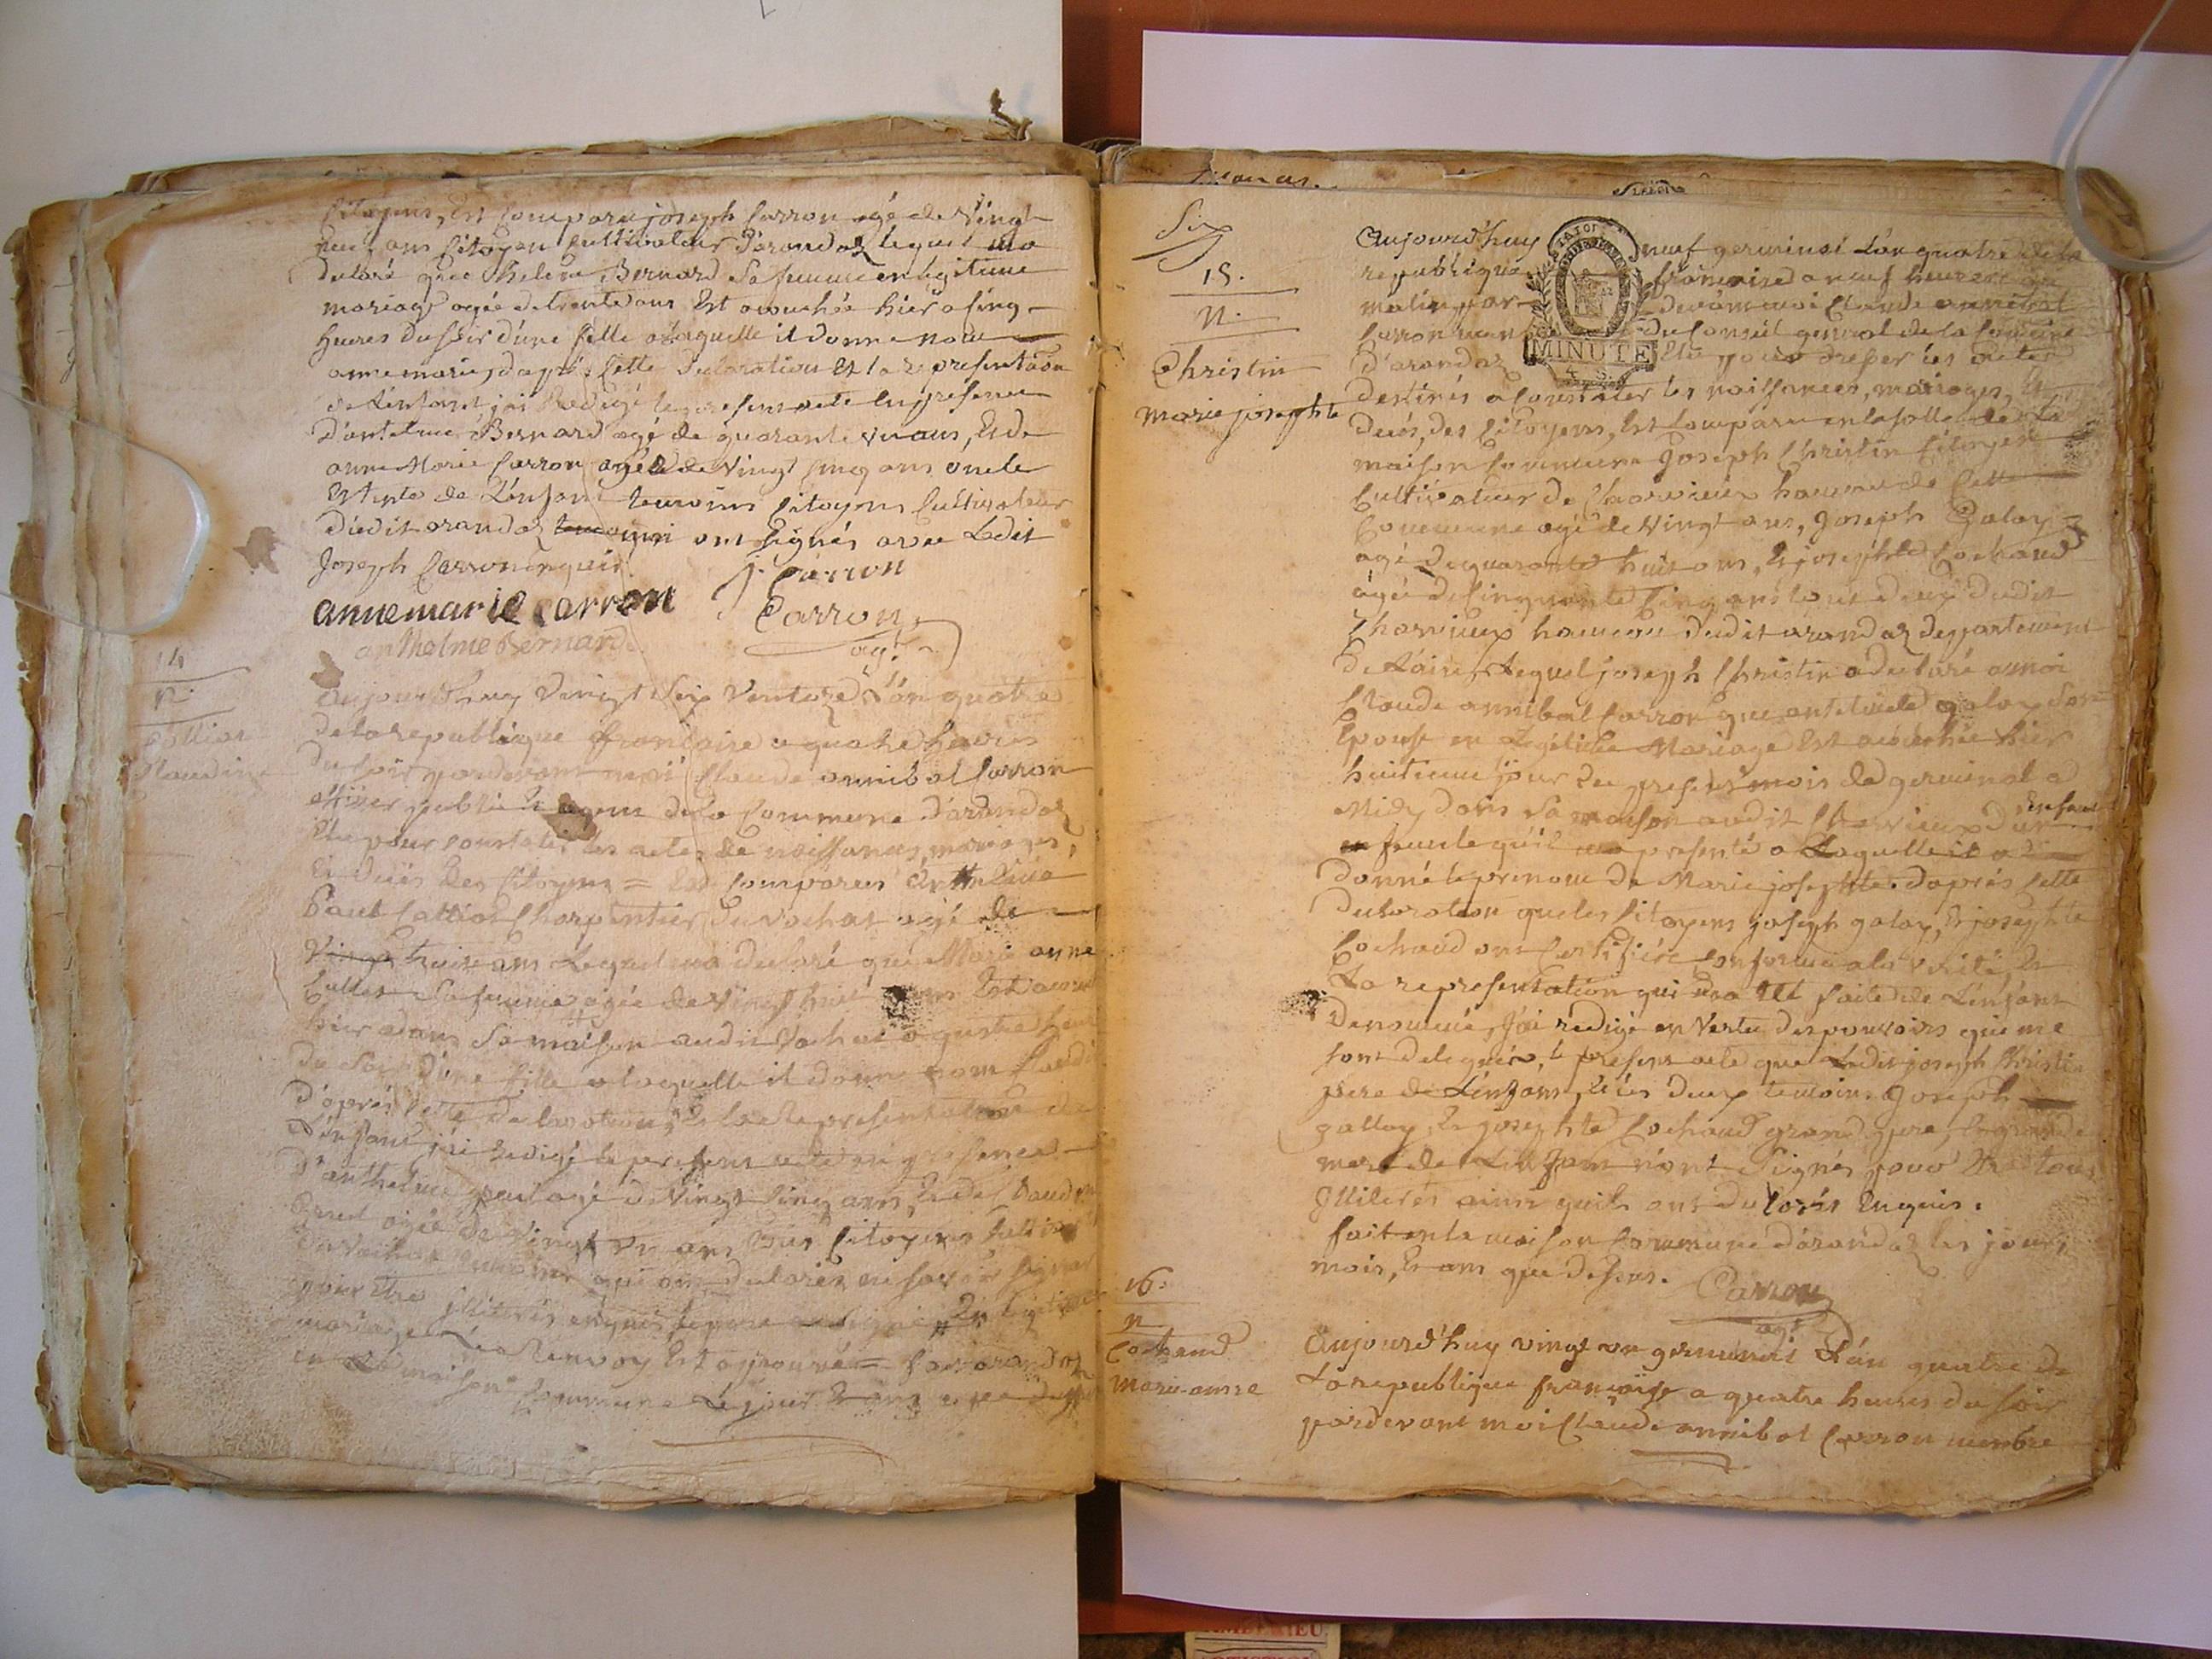 Citoyens, Est Comparu joseph Carron agé de Vingt
neuf ans Citoyen Cultivateur d'arandaz lequel ma
declaré que Helene Bernard Sa femme en legitime
mariage agée de trente ans Est acouchée hier a Cinq
heures du soir d'une fille a laquelle il donne nom
anne marie, daprés Cette declaration Et la representation
de L'enfant jai Redigé le present acte En presence
D'antelme Bernard agé de quarante un ans, Et de
anne Marie Carron agée de Vingt Cinq ans oncle
Et tente de L'enfant temoins Citoyens Cultivateur
dudit arandaz ont signés avec Ledit
Joseph Carron enquis.
annemarie carron J. Carron
anthelme Bernard Carron
agt
14
n.
Cattior
Claudine
aujourd'huy Vingt Six Ventoze L'an quatre
de la republique française a quatre heures
du soir pardevant moi Claude annibal Carron
officier public Et agent de la Commune D'arandaz
Elu pour constater les actes de naissances, mariages,
Et decés des Citoyens = Est Comparu Anthelme
Paul Charpentier du Vachat agé de
Vingt huit ans Lequel ma declaré que Marie anne
Cullet Sa femme agée de Vingt huit ans Est acouchée
hier dans Sa maison audit Vachat a quatre heures
du Soir D'une fille a laquelle il donne nom
D'aprés Cette declaration, Et la Representation de
L'enfant jai redigé le present acte en presence
D'anthelme paul agé de Vingt Cinq ans, Et de
agée de Vingt un ans, tous Citoyens
du Vachat temoins qui ont declarés ne savoir signer
pour Etre illiterés enquis, En legitime
mariage Le Renvoy Est aprouvé = fait arandaz
en la maison Commune Le jour Et an que dessus
Six
15.
n.
Christin
marie josephte
Aujourd'huy neuf germinal L'an quatre de la
republique française a neuf heures du
matin par devant moi Claude annibal
Carron membre du Conseil general de la Commune
D'arandaz Elu pour dresser les actes
MINUTE
destinés a Constater les naissances, mariages, Et
decés, des Citoyens, Est Comparu en la salle de La
maison Commune Joseph Christin Citoyen
Cultivateur de Charvieux hameau de Cette
Commune agé de Vingt ans, Joseph Galay
agé de quarante huit ans, Et josephte Cochaud
agée de Cinquante Cinq ans tous deux dudit
Charvieux hameau dudit arandaz departement
De L'ain, Lequel joseph Christin a declaré a moi
Claude annibal Carron que antelmete galay Son
Epouse en Legitime Mariage Est acouchée hier
huitieme jour du present mois de germinal a
Midy dans Sa maison audit Charvieux d'un Enfant
femele qu'il ma presenté a Laquelle il a
donné le prenom de Marie josephte. daprés Cette
declaration que les Citoyens joseph galay, Et josephte
Cochaud ont Certifiée Conforme a la Verité, Et
La representation qui ma Eté faite de L'enfant
denommé, J'ai redigé en Vertu des pouvoirs qui me
sont delegués, le present acte que Ledit joseph Christin
pere de L'enfant, Et les deux temoins Joseph
gallay, Et josephte Cochaud grand pere, Et grande
mere de L'enfant n'ont Signés pour Etre tous
Illiterés ainsi quils ont declarés Enquis.
fait en la maison Commune d'arandaz les jours,
mois, Et ans que dessus. Carron
agt
16.
n
Cochaud
Marie-anne
Aujourd'huy vingt un germinal L'an quatre de
La republique française a quatre heures du soir
pardevant moi Claude annibal Carron membre